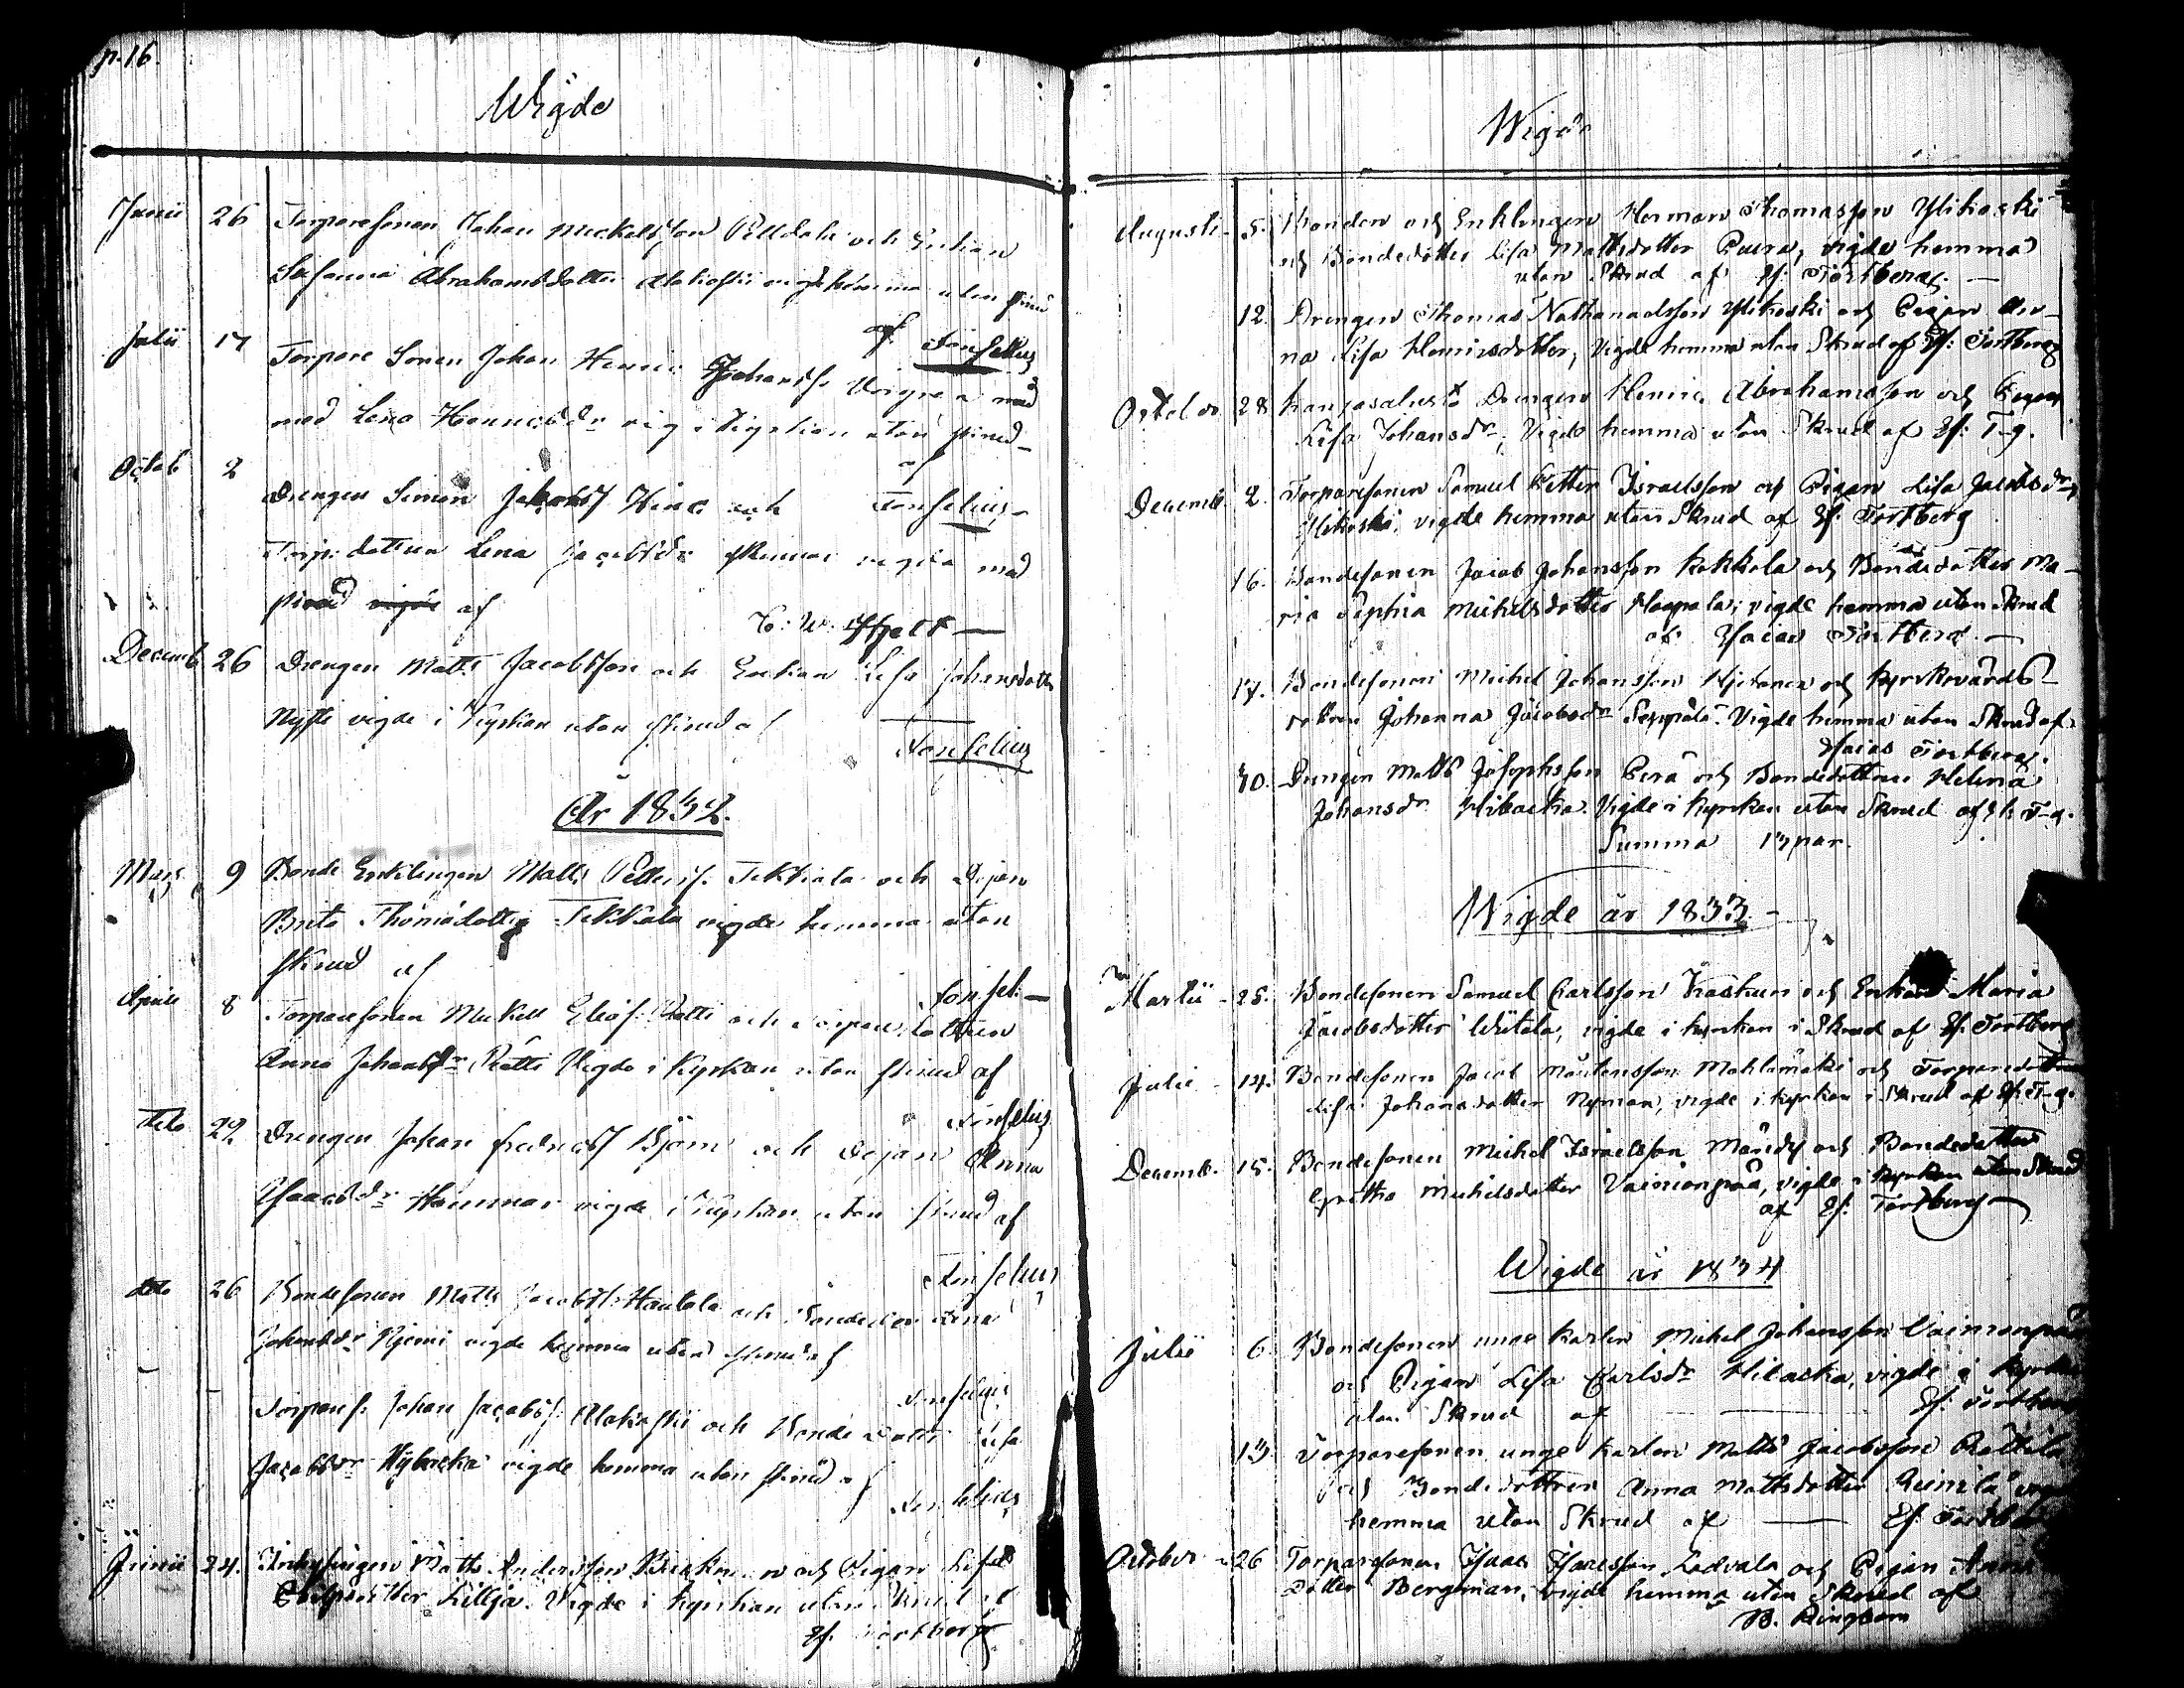 p. 16.
Wigde
Junii 26 Torparesonen Johan Mickelsson Pelldahl och Enkan
Susanna Abrahamsdotter Alakoski vigde hemma utan skrud
af Fonselius
Julii 17 Torpare Sonen Johan Henric Johanss.
med Lena Henricsdr vig i Kyrkan utan skrud
af
Octob 2 Drengen Simon Jakobss och Fonselius
Torp. dottren Lena Jacobsdr vigda med
skrud vigde af
Hjelt
Decemb 26 Drengen Matts Jacobsson och Enkan Lisa Johansdotter
vigde i Kyrkan utan skrud af
Fonselius
År 1832.
Mars 9 Bonde Enklingen Matts Petterss. och Pigan
Brita Thomasdotter vigde hemma utan
skrud af
Fonsel.
Aprill 8 Torparesonen Mickell Eliass. Rätti och Torpare dottren
Anna Johansdr Rätti Vigde i Kyrkan utan skrud af
Fonselius
dito 22 Drengen Johan Fredricss Björn och Pigan Anna
Isaacsdr Hammar vigde i Kyrkan utan skrud af
Fonselius
dito 26 Bondesonen Matts Jacobss. Hautala och Bondedotr Lena
Johansdr Niemi vigde hemma utan skrud af
Fonselius
Torpares. Johan Jacobss. Alakoski och Bonde Dottr Lisa
Jacobsdr Hybacka vigde hemma utan skrud af
Fonselius
Junii 24. Matts Andersson och Pigan Lisa
Lillja. Vigde i Kyrkan utan Skrud af
Es. Tortberg
Wigde
Augusti 5. Bonden och Enklingen Herman Thomasson Ylikoski
och Bondedotter Lisa Mattsdotter Paera, vigde hemma
utan Skrud af Es. Tortberg.
12. Drengen Thomas Nathanaelsson Ylikoski och Pigan An-
na Lisa Henricsdotter, Vigde hemma utan Skrud af Es: Tortberg
October 28 Drengen Henric Abrahamsson och Pigan
Lisa Johansdr, Vigde hemma utan Skrud af Es: T-g.
Decemb. 2. Torparesonen Samuel Petter Israelsson och Pigan Lisa Jacobsdr
Ylikoski, vigde hemma utan Skrud af Es: Tortberg
16. Bondesonen Jacob Johansson Kokkola och Bondedotter Ma-
ria Sophia Michelsdotter Haapala; vigde hemma utan Skrud
af Esaias Tortberg.
17. Bondesonen Michel Johansson Hietanen och Kyrkovärds
dottren Johanna Jacobsdr Seppälä. Vigde hemma utan Skrud af
Esaias Tortberg.
30. Drengen Matts Josephsson Perä och Bondedottren Helena
Johansdr Hibacka. Vigde i kyrkan utan Skrud af Es T-g.
Summa 13 par.
Wigde år 1833.
Martii 25. Bondesonen Samuel Carlsson Kaskun och Enkan Maria
Jacobsdotter Wiitala, vigde i kyrkan i Skrud af Es. Tortberg
Julii 14. Bondesonen Jacob Mårtensson Mahlamäki och Torparedotter
Lisa Johansdotter Nyman, vigde i kyrkan i Skrud af Es T-g.
Decemb. 15. Bondesonen Michel Israelsson Mändy och Bondedotter
Gretha Michelsdotter Vainionpää, vigde i kyrkan utan Skrud
af Es: Tortberg
Wigde år 1834
Julii 6. Bondesonen unge Karlen Michel Johansson Vainionpää
och Pigan Lisa Carlsdr Hibacka, vigde i kyrkan
utan Skrud af Es: Tortberg
13 Torparesonen unge Karlen Matts Jacobsson Rättilä
och Bondedottren Anna Mattsdotter Reinilä
hemma utan Skrud af Es Tortberg
October 26 Torparesonen Isaac Isacsson Ledvala och Pigan Anna
dotter Bergman, vigde hemma utan Skrud af
B. Ringbom